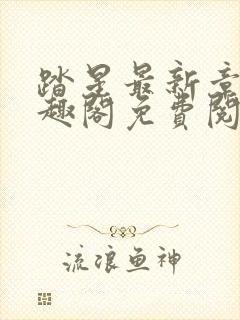 踏星最新章
趣阁免費閱
流浪鱼神